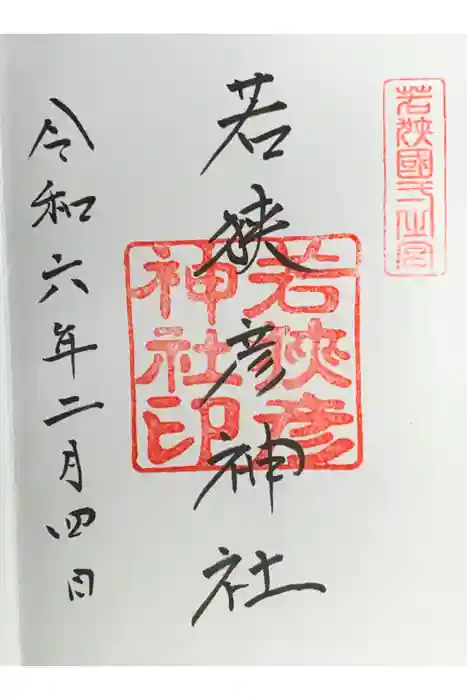 若狹國一之宮
若狹彦神社
若狹彦
神社印
令和六年二月四日